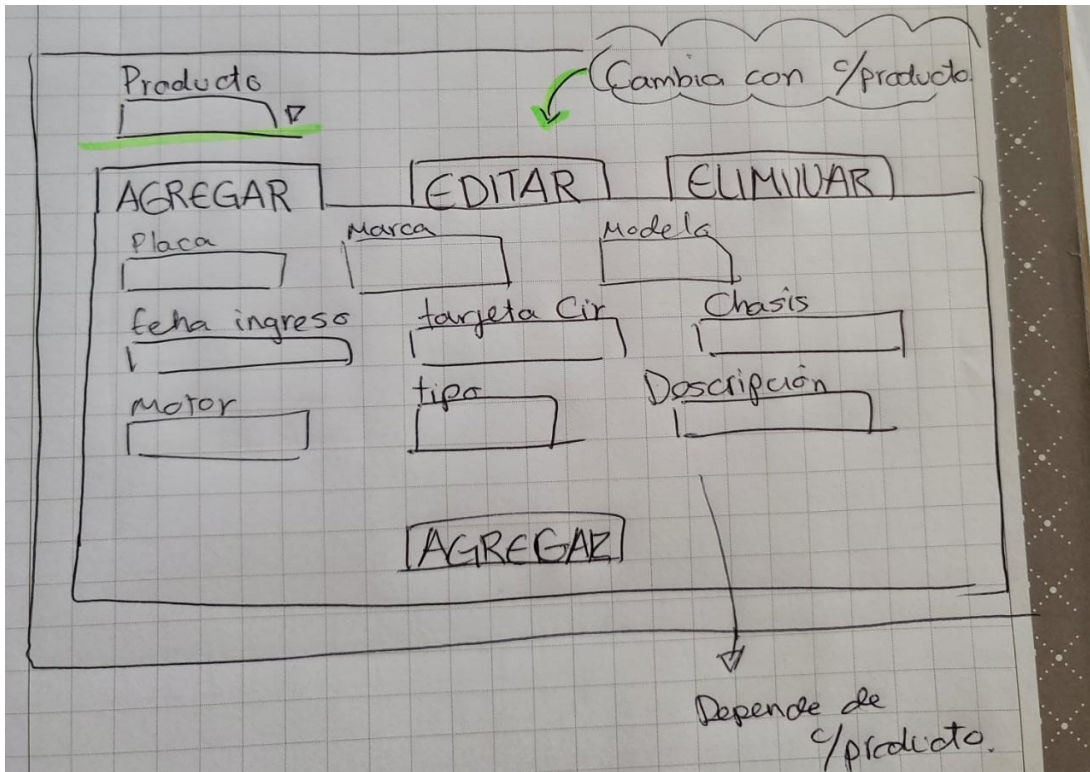 Producto
Cambia con c/producto.
AGREGAR EDITAR ELIMINAR
Placa Marca Modelo
fecha ingreso tarjeta Cir Chasis
Motor tipo Descripción
AGREGAR
Depende de
c/producto.